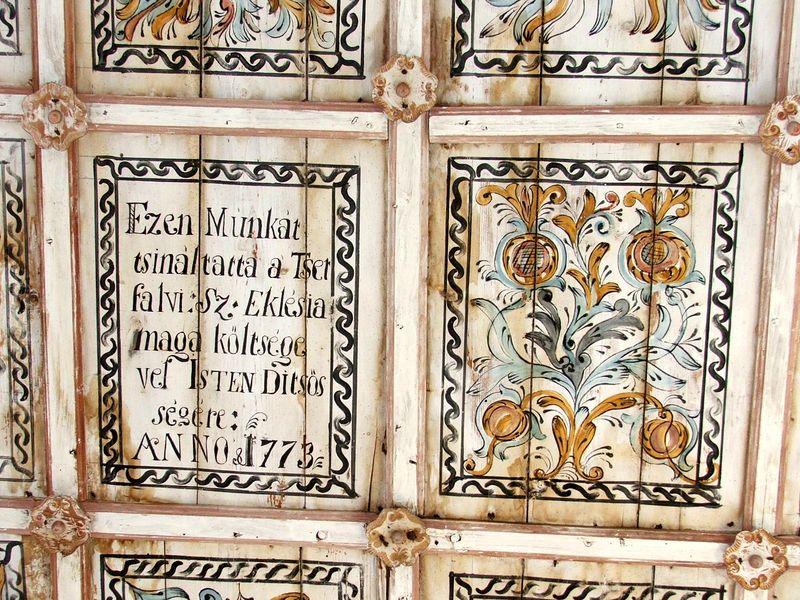 Ezen Munkát
tsináltatta a Tset
falvi: Sz. Eklésia
maga költsége
vel ISTEN Ditsös
ségére:
ANNO. 1773.